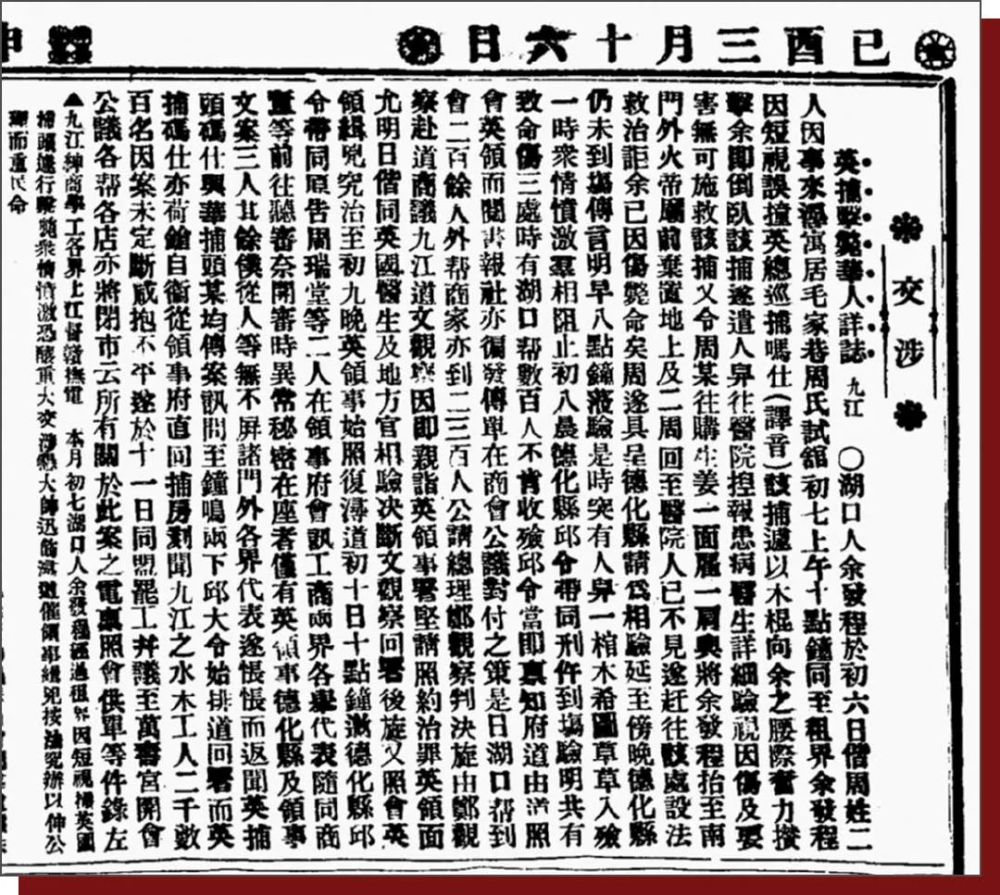 己酉三月十六日
申
交涉
英捕擊斃華人詳誌 九江 ○湖口人余發程於初六日偕周姓二
人因事來潯寓居毛家巷周氏試舘初七上午十點鐘同至租界余發程
因短視誤撞英總巡捕嗎仕(譯音)該捕遽以木棍向余之腰際奮力攢
擊余即倒臥該捕遂遣人舁往醫院揑報患病醫生詳細驗視因傷及要
害無可施救該捕又令周某往購生姜一面雇一肩輿將余發程抬至南
門外火帝廟前棄置地上及二周回至醫院人已不見遂赶往該處設法
救治詎余已因傷斃命矣周遂具呈德化縣請爲相驗延至傍晚德化縣
仍未到塲傳言明早八點鐘蒞驗是時突有人舁一棺木希圖草草入殮
一時衆情憤激羣相阻止初八晨德化縣邱令帶同刑仵到塲驗明共有
致命傷三處時有湖口帮數百人不肯收殮邱令當即稟知府道由道照
會英領而閱書報社亦徧發傳單在商會公議對付之策是日湖口帮到
會二百餘人外帮商家亦到二三百人公請總理鄭觀察判決旋由鄭觀
察赴道商議九江道文觀察因即親詣英領事署堅請照約治罪英領面
允明日偕同英國醫生及地方官相驗決斷文觀察回署後旋又照會英
領緝兇究治至初九晚英領事始照復潯道初十日十點鐘邀德化縣邱
令帶同原告周瑞堂等二人在領事府會訊工商兩界各舉代表隨同商
董等前往聽審奈開審時異常秘密在座者僅有英領事德化縣及領事
文案三人其餘僕從人等無不屏諸門外各界代表遂悵悵而返聞英捕
頭嗎仕與華捕頭某均傳案訊問至鐘鳴兩下邱大令始排道回署而英
捕嗎仕亦荷鎗自衞從領事府直回捕房刻聞九江之水木工人二千數
百名因案未定斷咸抱不平遂於十一日同盟罷工幷議至萬壽宮開會
公議各帮各店亦將閉市云所有關於此案之電稟照會供單等件錄左
▲九江紳商學工各界上江督贛撫電 本月初七湖口人余發程經過租界因短視撞英國
捕頭遽行擊斃衆情憤激恐釀重大交涉懇大帥迅飭潯道催領事緝兇按法究辦以伸公
理而重民命